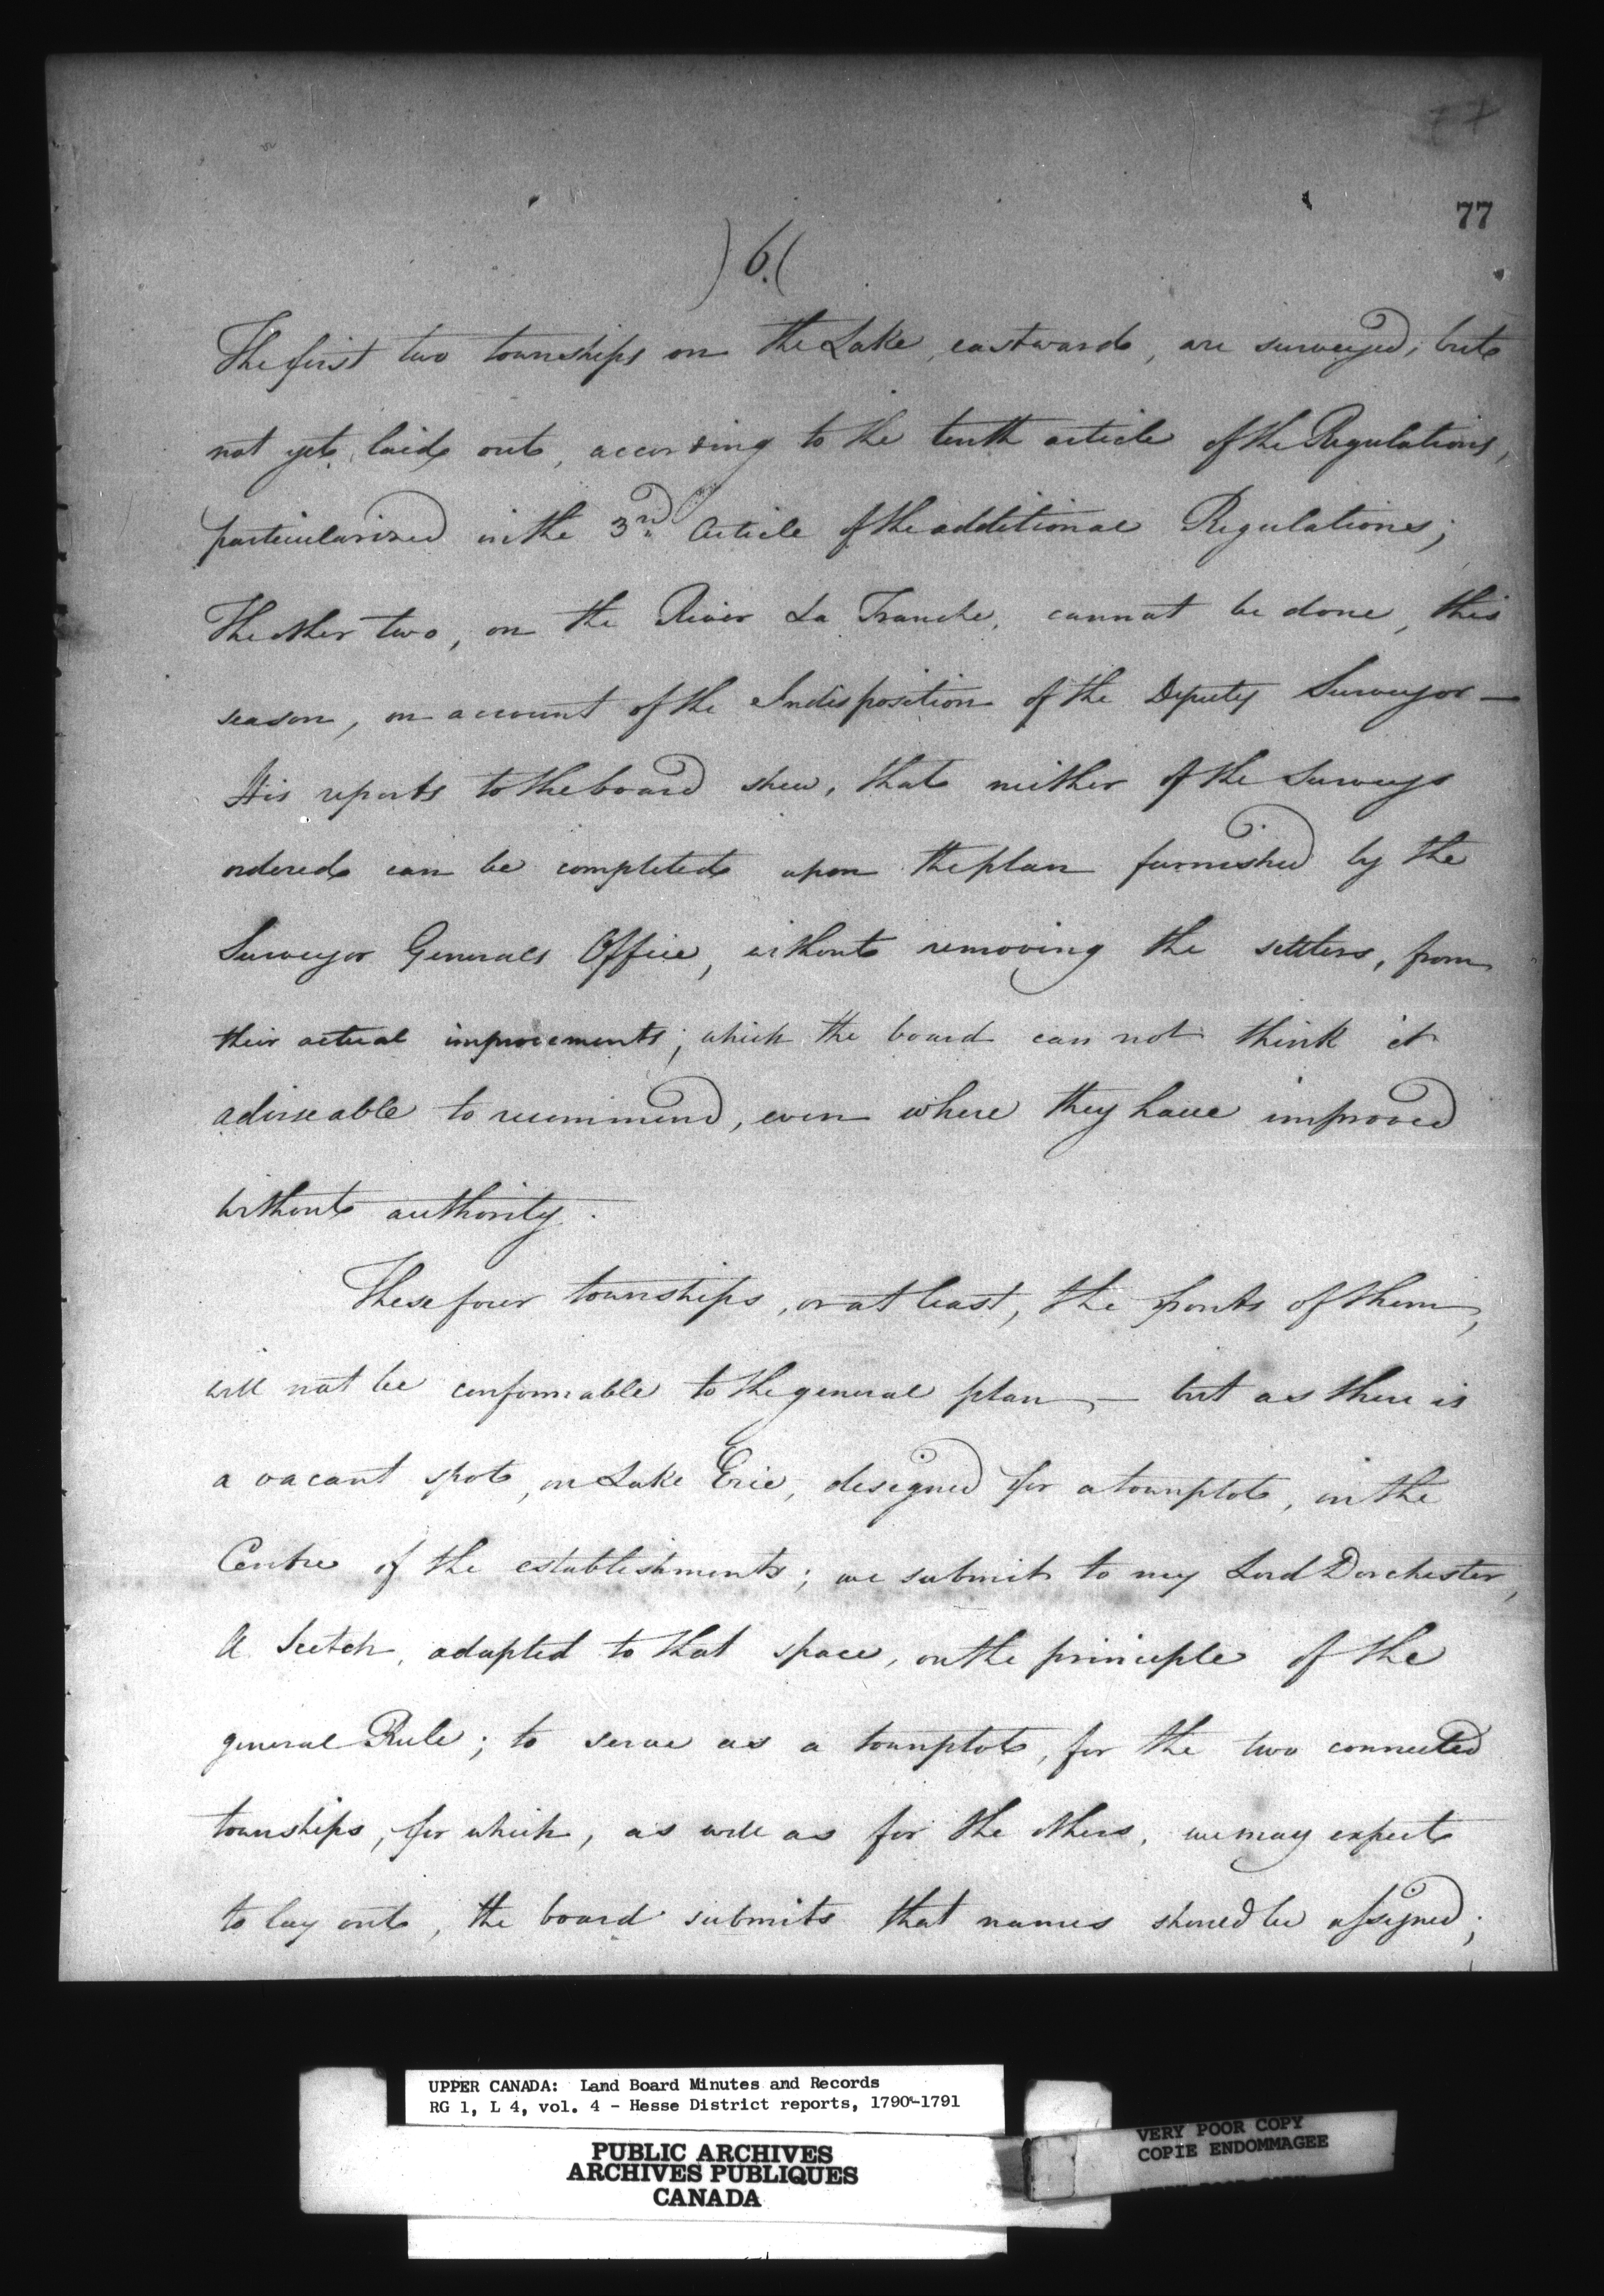 77
77
)6.(
The first two townships on the Lake, eastward, are surveyed, but
not yet laid out, according to the tenth article of the Regulations,
particularised in the 3rd. Article of the additional Regulations;
The other two, on the River La Tranche, cannot be done, this
season, on account of the Indisposition of the Deputy Surveyor —
His reports to the board shew, that neither of the Surveys
ordered can be completed upon the plan furnished by the
Surveyor Generals Office, without removing the settlers, from
their actual improvements; which the board can not think it
adviseable to recommend, even where they have improved
without authority.
These four townships, or at least, the fronts of them,
will not be conformable to the general plan, — but as there is
a vacant spot, on Lake Erie, designed for a townplot, in the
Centre of the establishments; we submit to my Lord Dorchester,
A Scetch, adapted to that space, on the principle of the
general Rule; to serve as a townplot, for the two connected
townships, for which, as well as for the others, we may expect
to lay out, the board submits that names should be assigned;
UPPER CANADA: Land Board Minutes and Records
RG 1, L 4, vol. 4 - Hesse District reports, 1790-1791
PUBLIC ARCHIVES
ARCHIVES PUBLIQUES
CANADA
VERY POOR COPY
COPIE ENDOMMAGEE